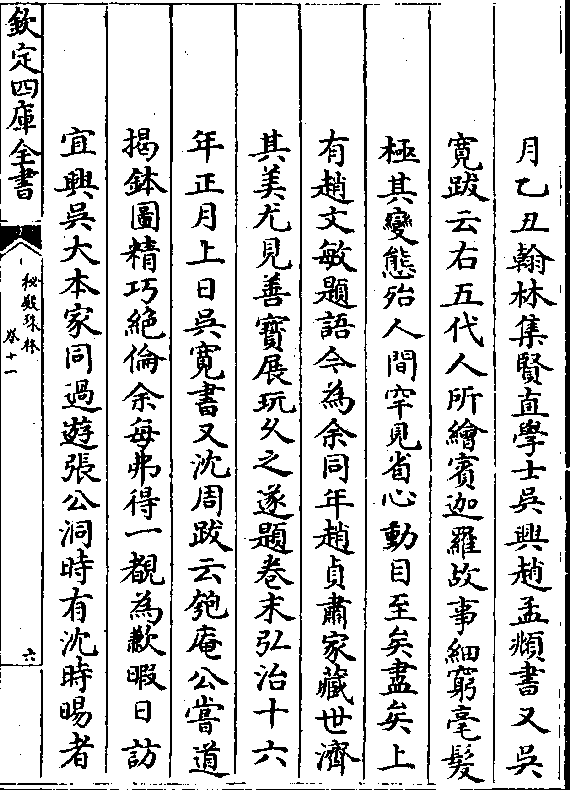 月乙丑翰林集賢直學士吳興趙孟頫書又吳
寛跋云右五代人所繪賓迦羅故事細窮毫髮
極其變態殆人間罕見省心動目至矣盡矣上
有趙文敏題語今為余同年趙貞肅家藏世濟
其美尤見善寶展玩久之遂題卷末弘治十六
年正月上日吳寛書又沈周跋云匏庵公嘗道
揭鉢圖精巧絶倫余每弗得一覩為歉暇日訪
宜興吳大本家同過遊張公洞時有沈時暘者
欽定四庫全書
秘殿珠林
卷十一
六